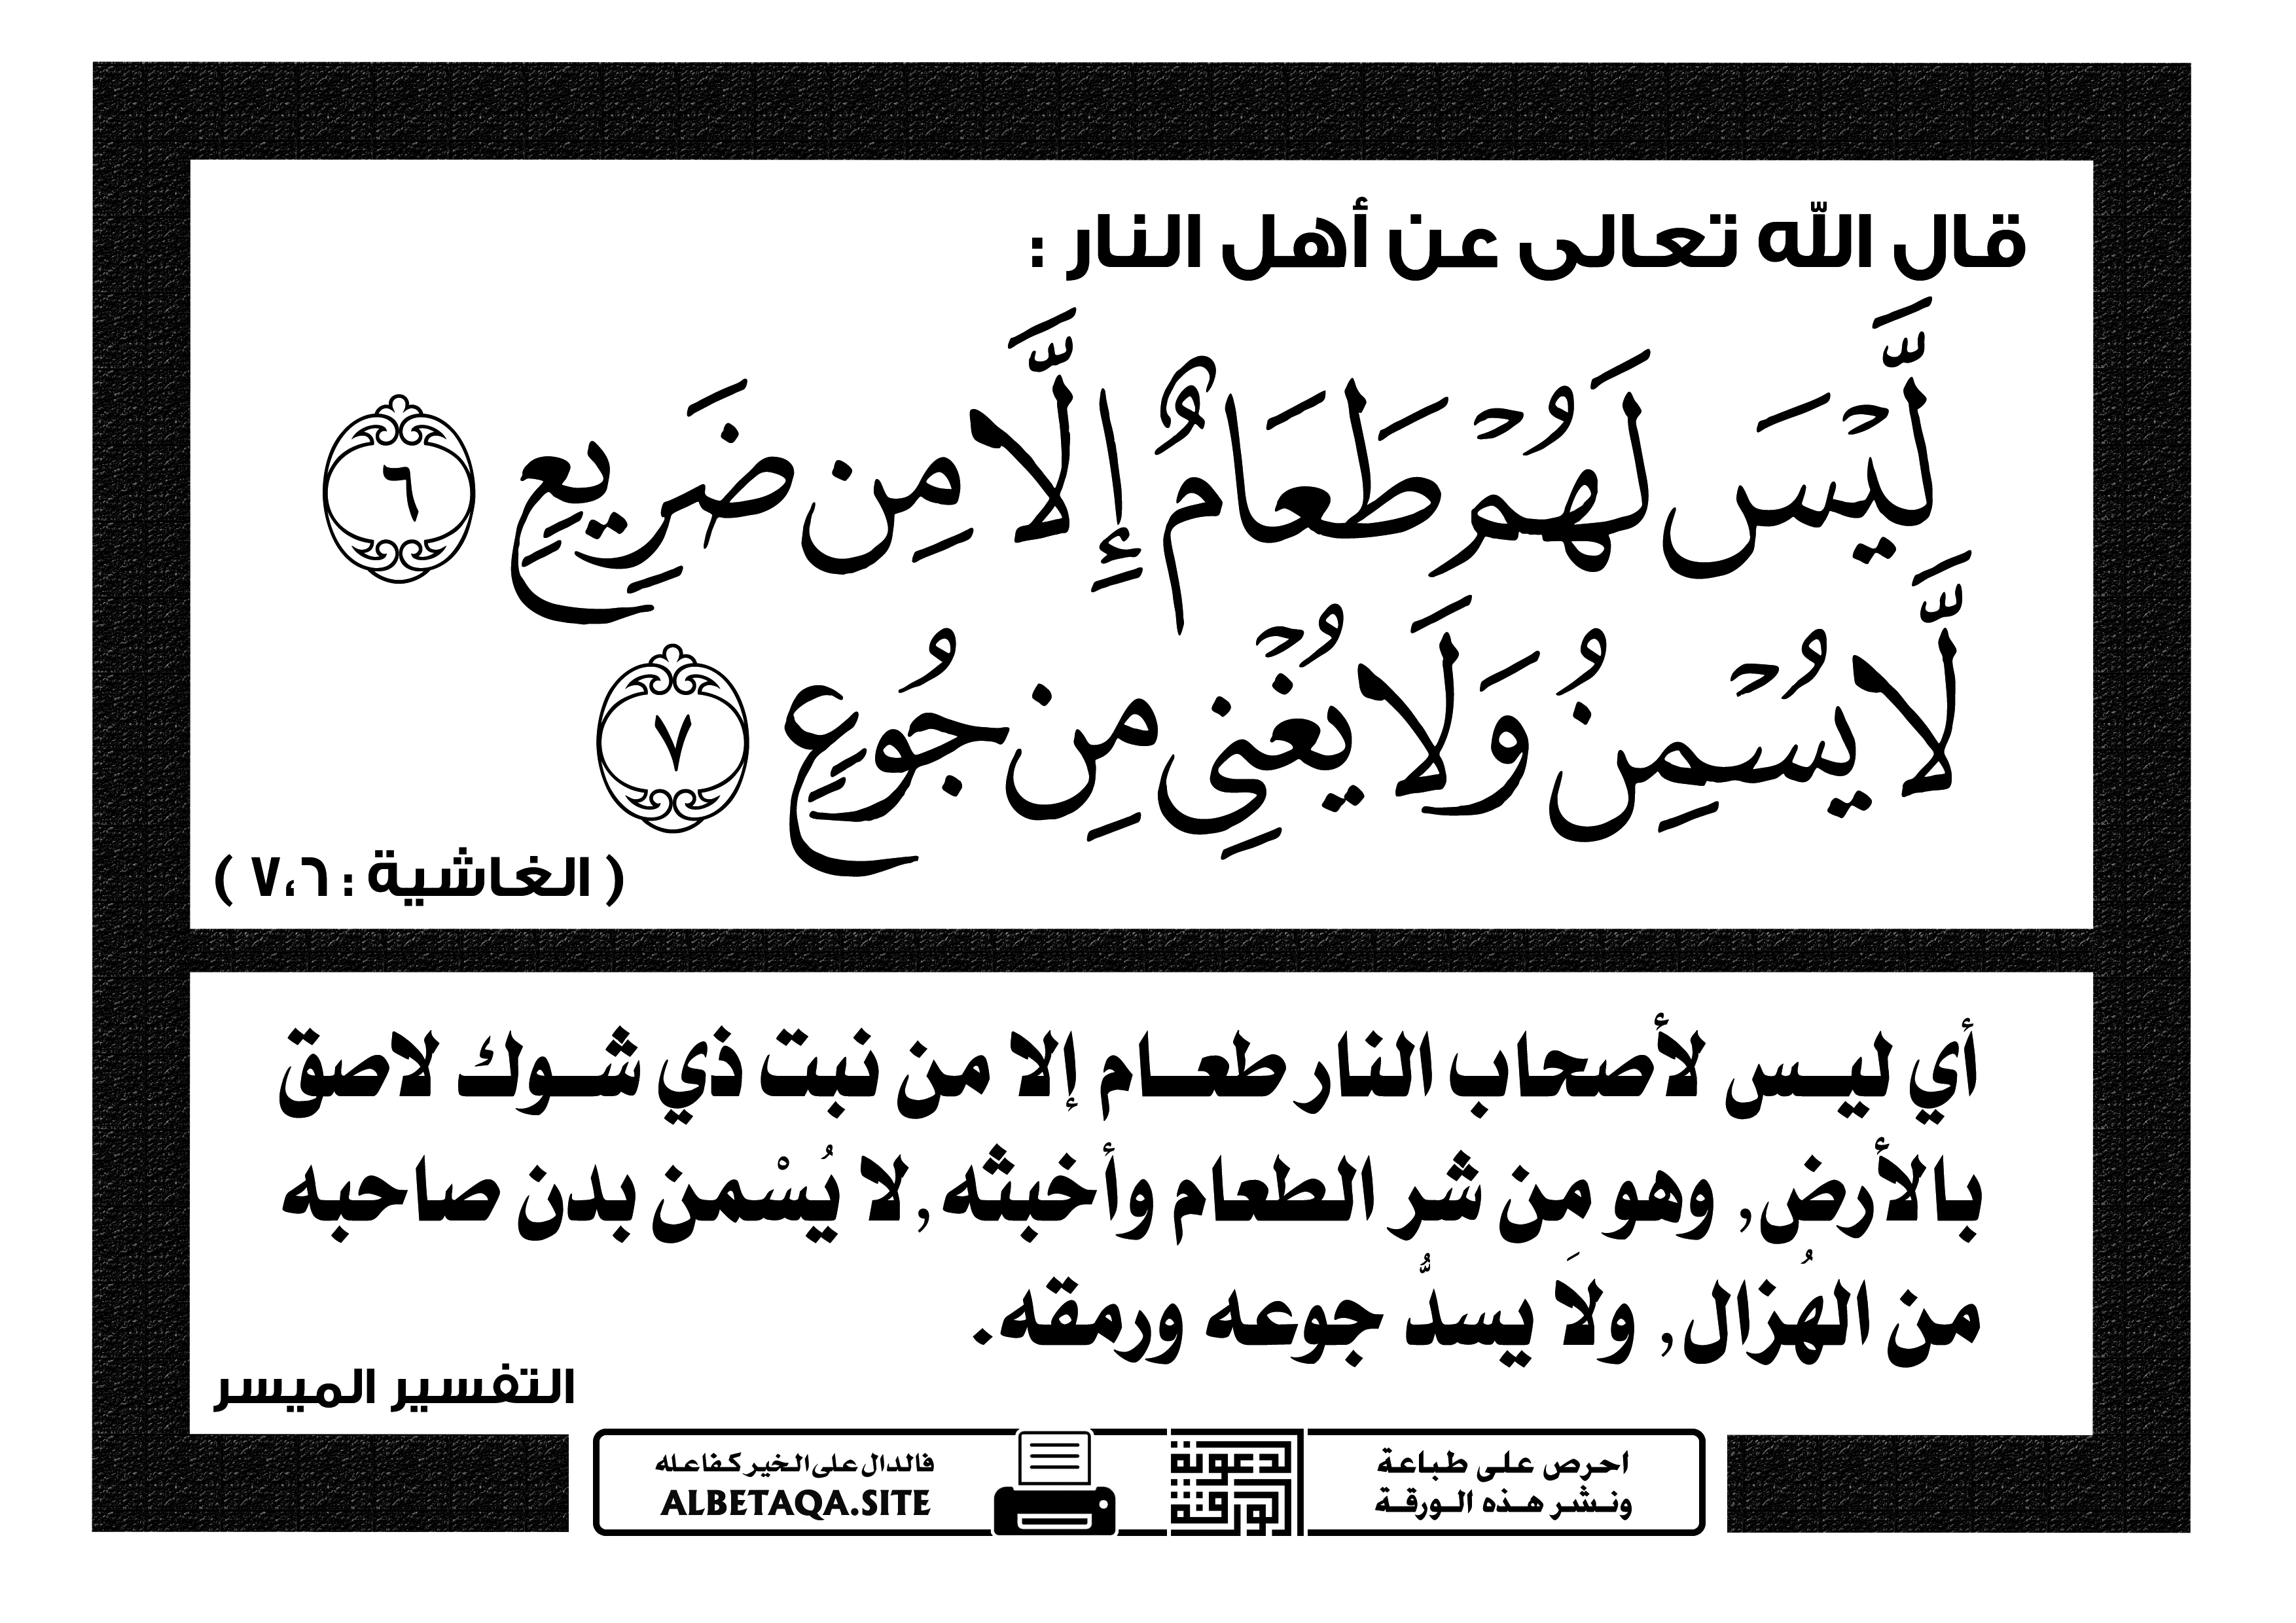 قال الله تعالى عن أهل النار :
لَّيْسَ لَهُمْ طَعَامٌ إِلَّا مِن ضَرِيعٍ ٦
لَّا يُسْمِنُ وَلَا يُغْنِي مِن جُوعٍ ٧
( الغاشية : ٦،٧ )
أي ليس لأصحاب النار طعام إلا من نبت ذي شوك لاصق
بالأرض, وهو من شر الطعام وأخبثه, لا يُسْمن بدن صاحبه
من الهُزال, ولَا يسدُّ جوعه ورمقه.
التفسير الميسر
احرص على طباعة
ونشر هذه الورقة
الدعوية
الورقة
فالدال على الخير كفاعله
ALBETAQA.SITE